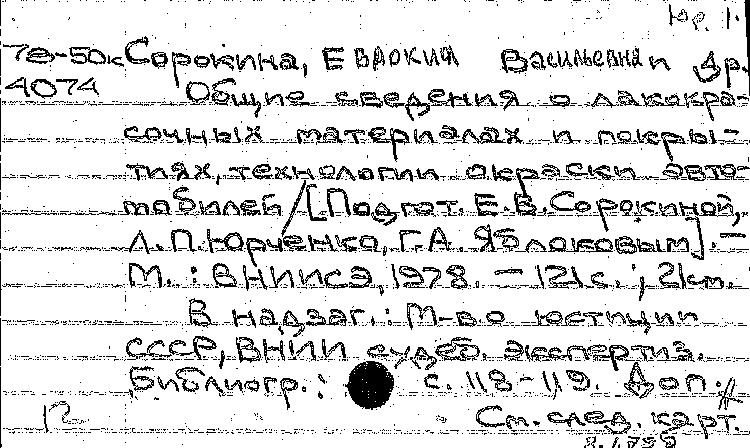 Юр. 1.
78-50к Сорокина, Евдокия Васильевна и др.
4074 Общие сведения о лакокра-
сочных материалах и покры-
тиях, технологии окраски авто-
мобилей / [Подгот. Е.В. Сорокиной,
Л.П. Юрченко, Г.А. Яблоковым]. —
М. : ВНИИСЭ, 1978. — 121 с. ; 21 см.
В надзаг.: М-во юстиции
СССР, ВНИИ судеб. экспертиз.
Библиогр.: с. 118-119. Доп.
См. след. карт.